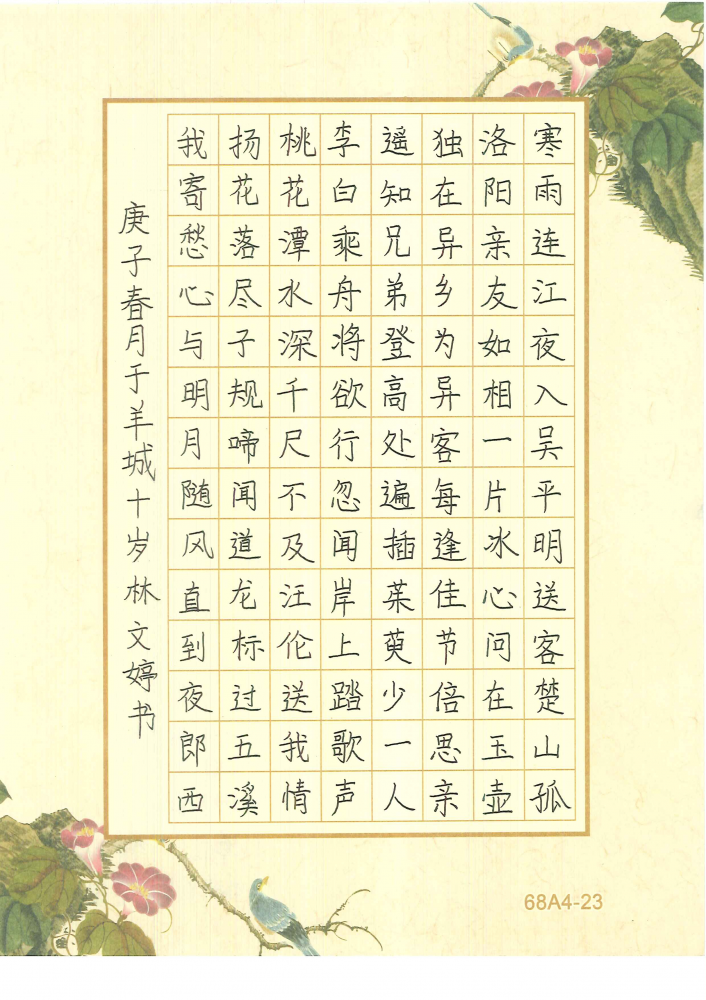 寒雨连江夜入吴平明送客楚山孤
洛阳亲友如相一片冰心问在玉壶
独在异乡为异客每逢佳节倍思亲
遥知兄弟登高处遍插茱萸少一人
李白乘舟将欲行忽闻岸上踏歌声
桃花潭水深千尺不及汪伦送我情
扬花落尽子规啼闻道龙标过五溪
我寄愁心与明月随风直到夜郎西
庚子春月于羊城十岁林文婷书
68A4-23